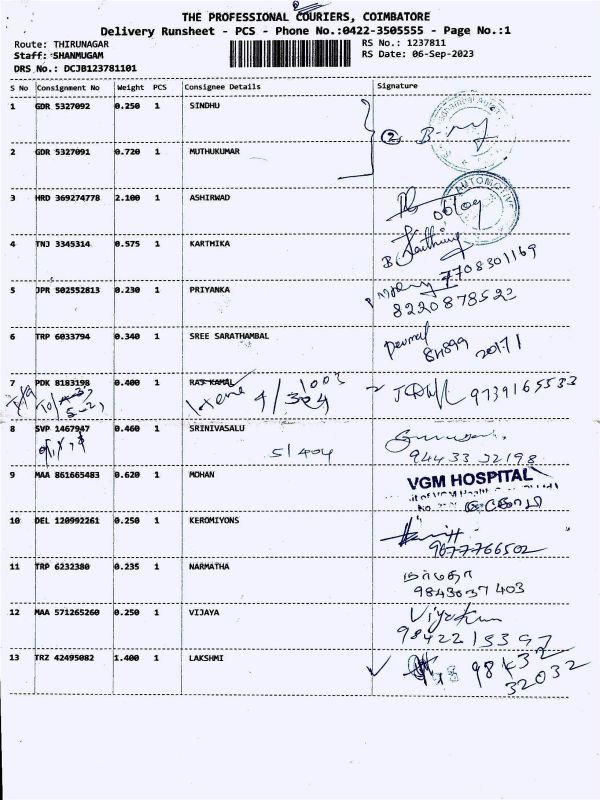 THE PROFESSIONAL COURIERS, COIMBATORE
Delivery Runsheet - PCS - Phone No.:0422-3505555 - Page No.:1
Route: THIRUNAGAR
RS No.: 1237811
Staff: SHANMUGAM
RS Date: 06-Sep-2023
DRS No.: DCJB123781101
S No Consignment No Weight PCS Consignee Details Signature
1 GDR 5327092 0.250 1 SINDHU
2
2 GDR 5327091 0.720 1 MUTHUKUMAR
AUTOMOTIVE
3 HRD 369274778 2.100 1 ASHIRWAD
06/09
4 TNJ 3345314 0.575 1 KARTHIKA
7708301169
5 JPR 502552813 0.230 1 PRIYANKA
8220878522
6 TRP 6033794 0.340 1 SREE SARATHAMBAL
7 PDK 8183198 0.400 1 RAJ KAMAL
1003
4/304
9739165533
8 SVP 1467947 0.460 1 SRINIVASALU
5/404
94433 22198
9 MAA 861665483 0.620 1 MOHAN
VGM HOSPITAL
10 DEL 120992261 0.250 1 KEROMIYONS
9677766502
11 TRP 6232380 0.235 1 NARMATHA
நர்மதா
9843037403
12 MAA 571265260 0.250 1 VIJAYA
9842215397
13 TRZ 42495082 1.400 1 LAKSHMI
98432
32032